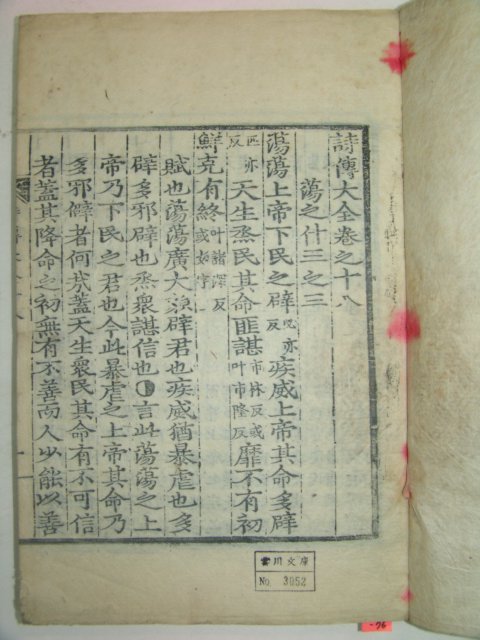 詩傳大全卷之十八
蕩之什三之三
蕩蕩上帝下民之辟必亦反疾威上帝其命多辟
匹亦反天生烝民其命匪諶市林反或叶市隆反靡不有初
鮮克有終叶諸深反或如字
賦也蕩蕩廣大貌辟君也疾威猶暴虐也多
辟多邪辟也烝衆諶信也言此蕩蕩之上
帝乃下民之君也今此暴虐之上帝其命乃
多邪僻者何哉蓋天生衆民其命有不可信
者蓋其降命之初無有不善而人少能以善
雲川文庫
No 3952
-76